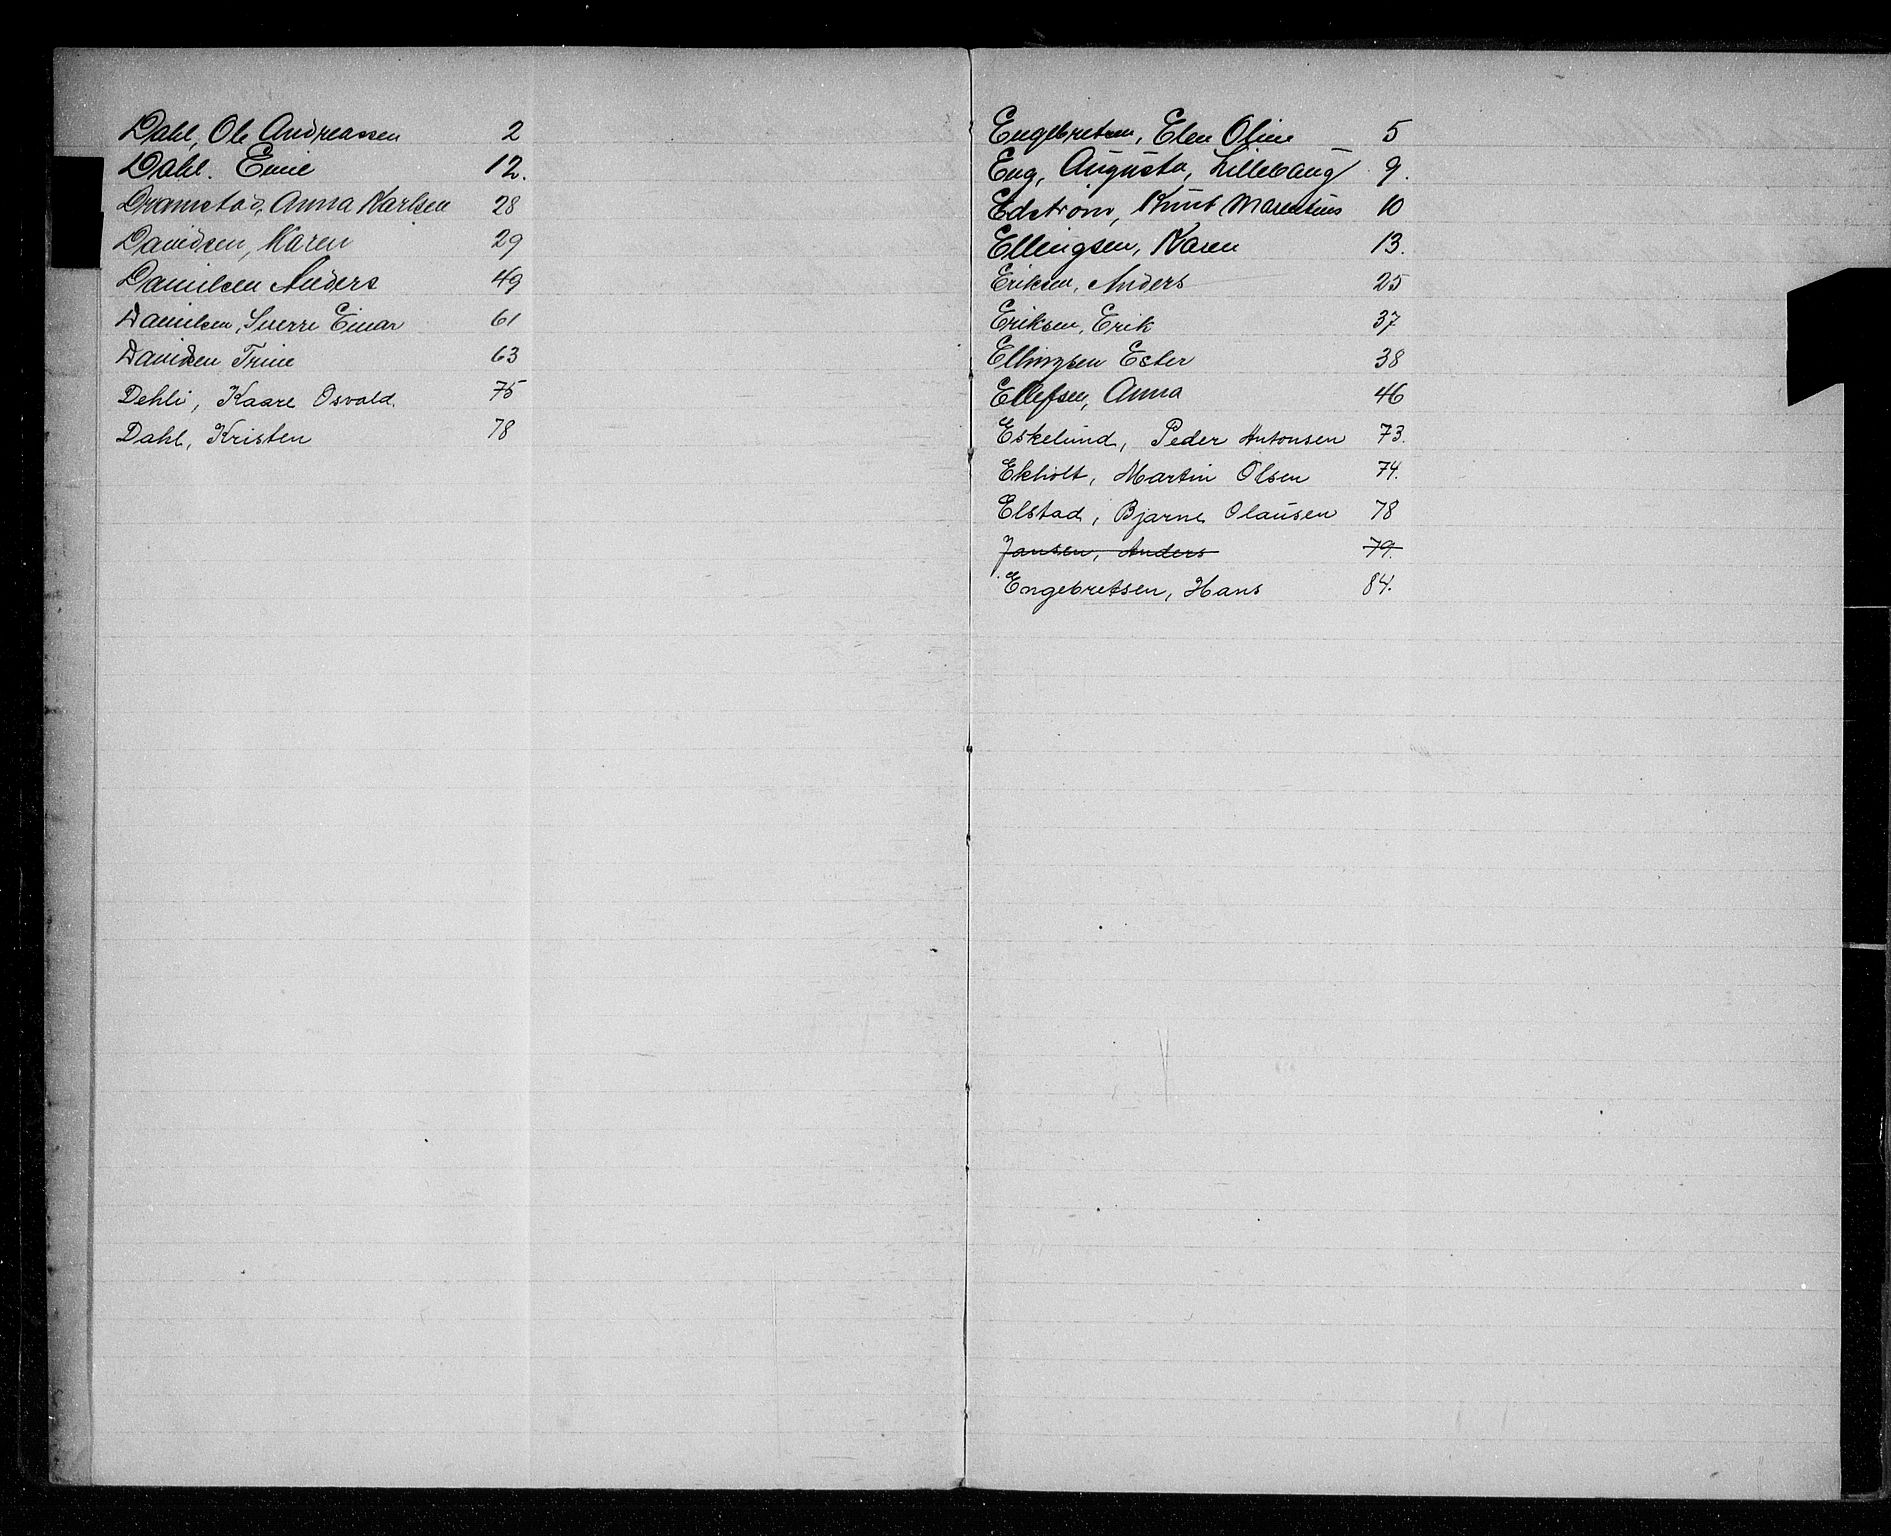 Dahl, Ole Andreassen 2
Dahl. Emil 12.
Dramstad, Anna Karlsen 28
Davidsen, Karen 29
Danielsen Anders 49
Danielsen, Sverre Einar 61
Davidsen Trine 63
Dehli, Kaare Osvald. 75
Dahl, Kristen 78
Engebretsen, Elen Oline 5
Eng, Augusta, Lillehaug 9.
Edstrøm, Knut Marentius 10
Ellingsen, Karen 13.
Eriksen, Anders 25
Eriksen, Erik 37
Ellingsen Ester 38
Ellefsen, Anna 46
Eskelund, Peder Antonsen 73.
Ekholt, Martin Olsen 74.
Elstad, Bjarne Olausen 78
Jansen, Anders 79.
Engebretsen, Hans 84.